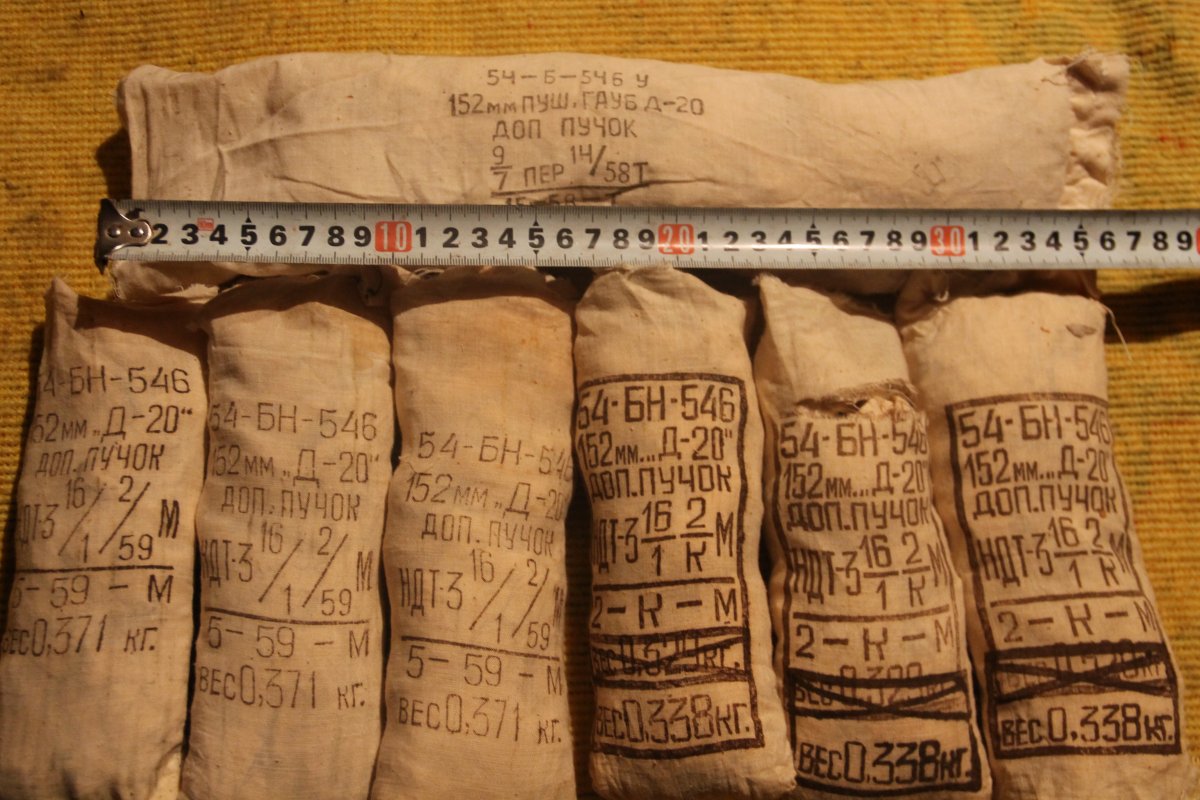 54-Б-546 У
152мм ПУШ. ГАУБ Д-20
ДОП ПУЧОК
9/7 ПЕР 14/58Т
2 3 4 5 6 7 8 9 10 1 2 3 4 5 6 7 8 9 20 1 2 3 4 5 6 7 8 9 30 1 2 3 4 5 6 7 8 9
4-БН-546
52мм „Д-20“
ДОП. ПУЧОК
ДТ-3 16/1 2/59 М
5-59-М
ВЕС 0,371 кг.
54-БН-546
152мм „Д-20“
ДОП. ПУЧОК
НДТ-3 16/1 2/59 М
5-59-М
ВЕС 0,371 кг.
54-БН-546
152мм „Д-20
ДОП. ПУЧОК
НДТ-3 16/1 2/59 М
5-59-М
ВЕС 0,371 кг.
54-БН-546
152мм...Д-20"
ДОП.ПУЧОК
НДТ-3 16/1 2/К М
2-К-М
ВЕС 0,338кг.
54-БН-546
152мм...Д-20"
ДОП.ПУЧОК
НДТ-3 16/1 2/К М
2-К-М
ВЕС 0,338кг.
54-БН-546
152мм...Д-20"
ДОП.ПУЧОК
НДТ-3 16/1 2/К М
2-К-М
ВЕС 0,338кг.